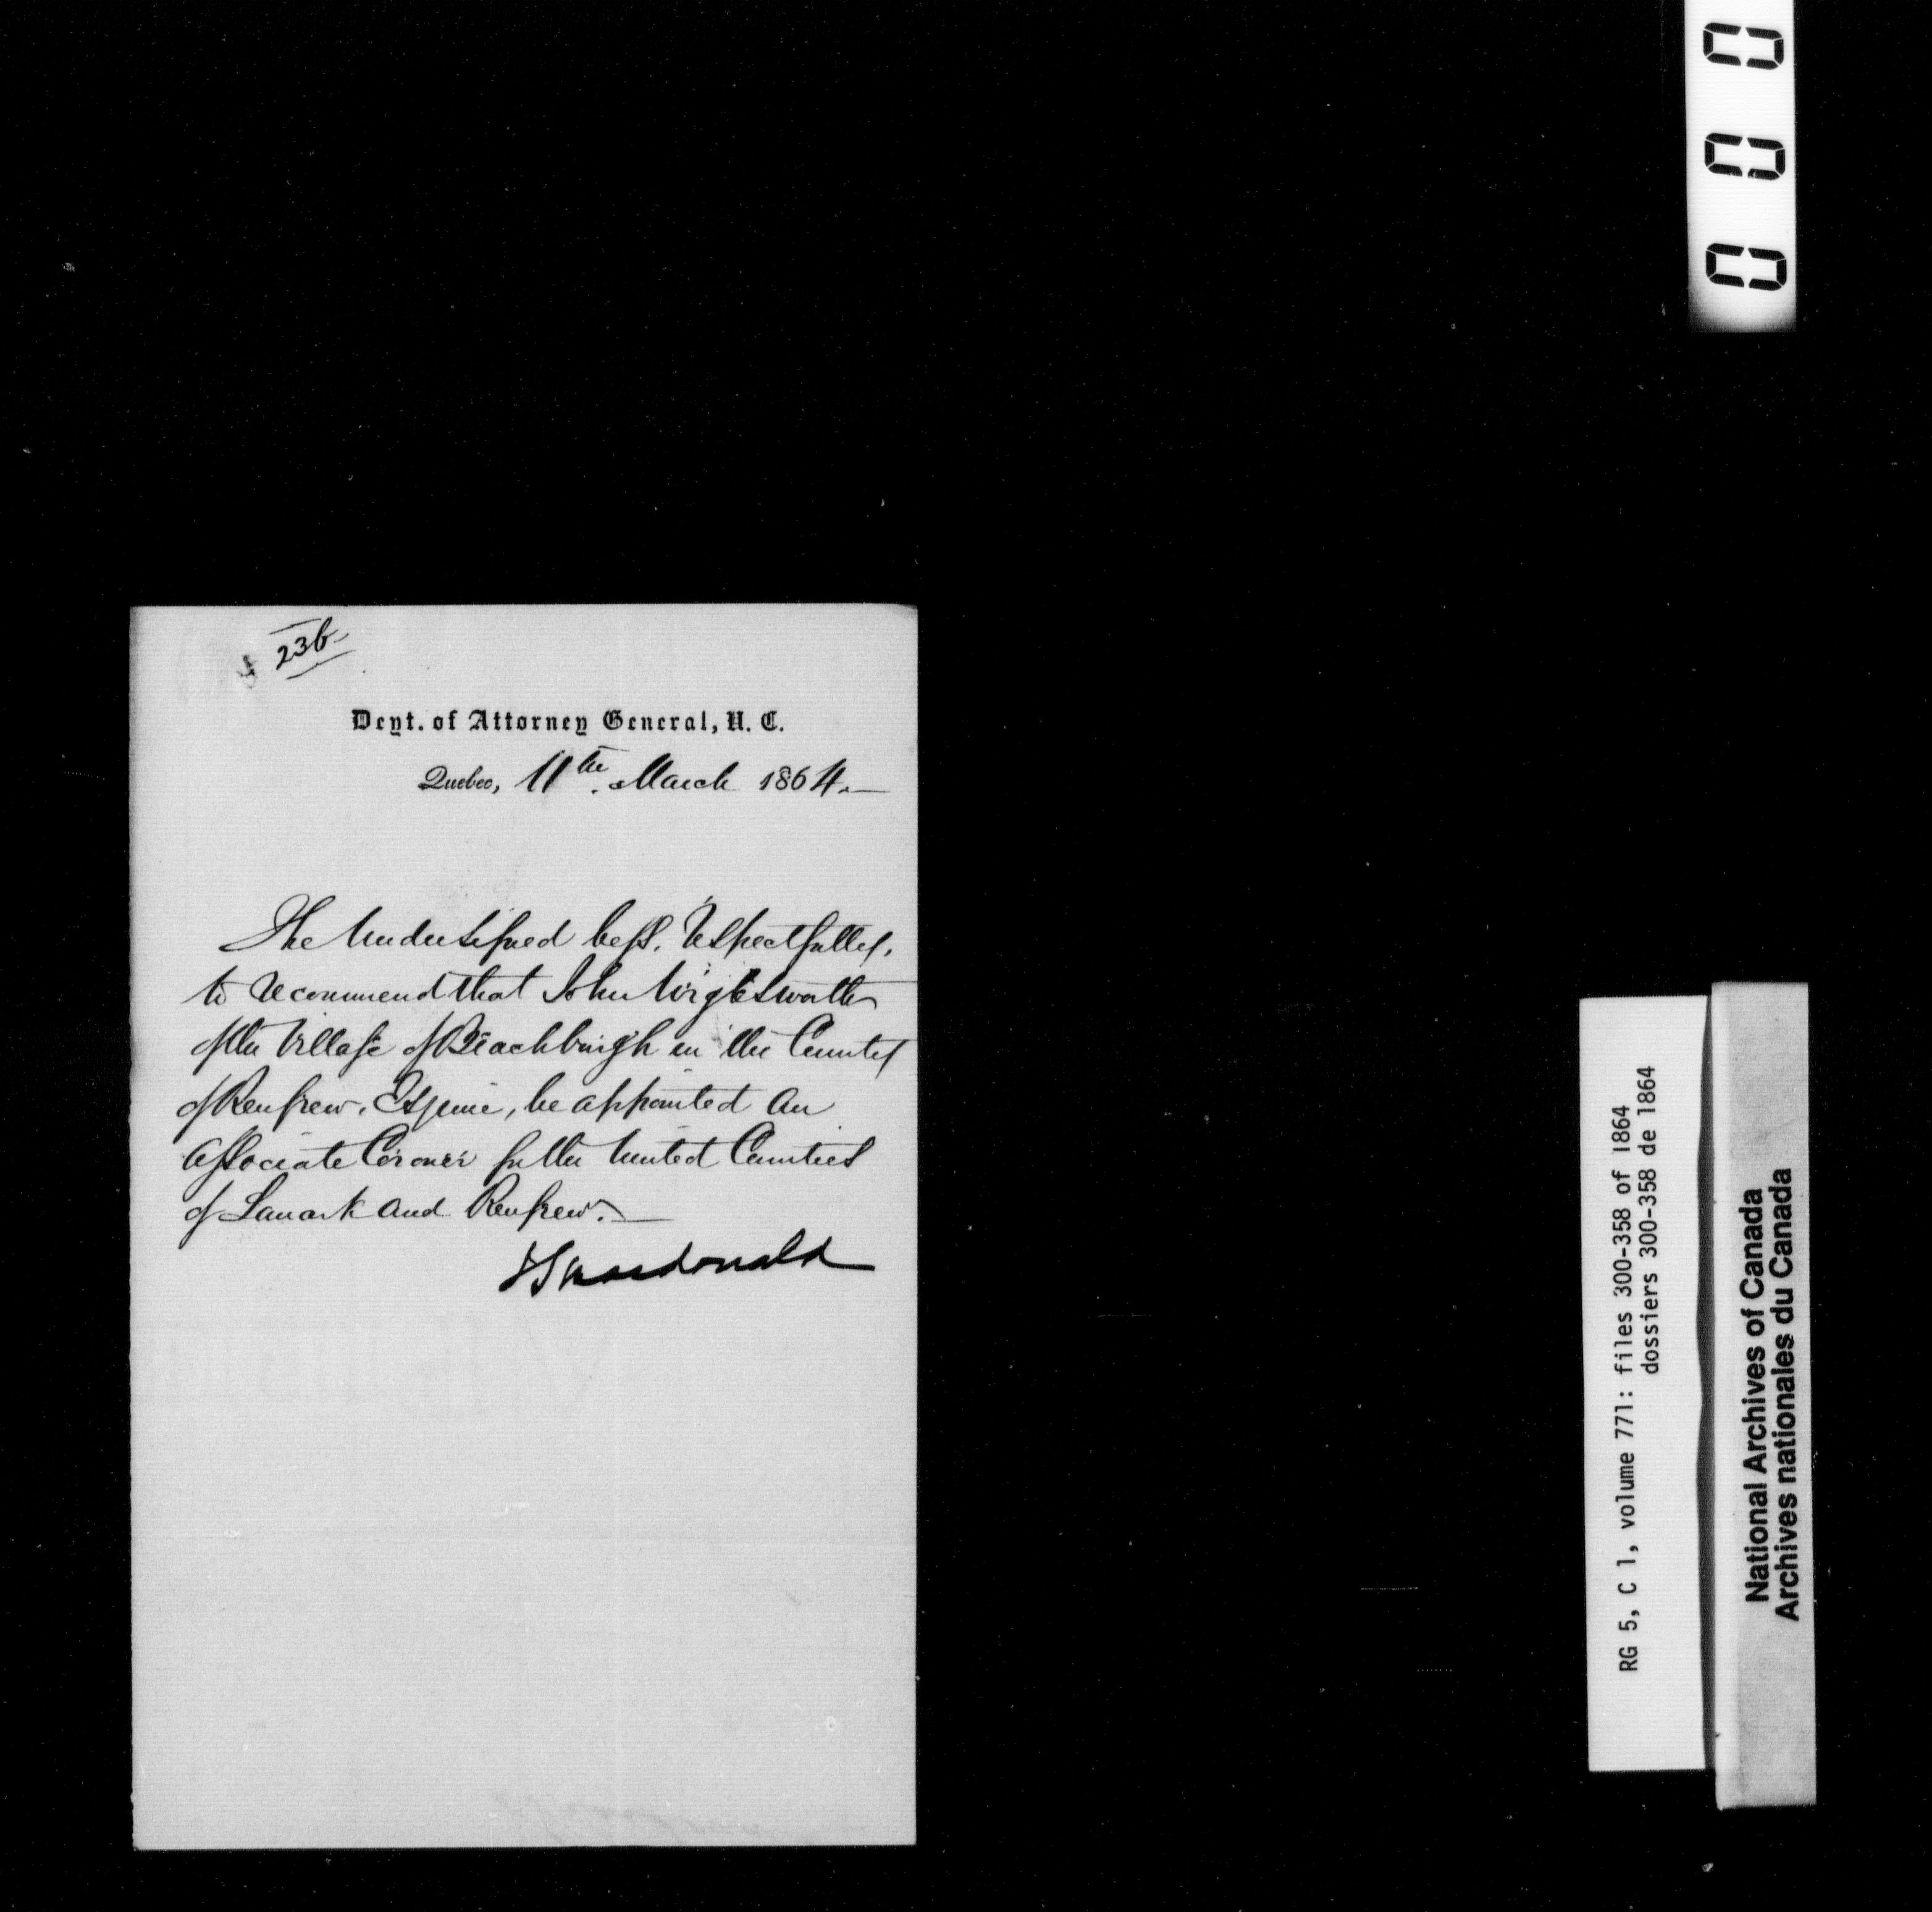 236
Dept. of Attorney General, U. C.
Quebec, 11th March 1864.
The Undersigned begs, respectfully,
to recommend that John Wiglesworth
of the Village of Beachburgh in the County
of Renfrew, Esquire, be appointed an
Associate Coroner for the United Counties
of Lanark and Renfrew.
JSMacdonald
0 0 0
RG 5, C 1, volume 771: files 300-358 of 1864
dossiers 300-358 de 1864
National Archives of Canada
Archives nationales du Canada